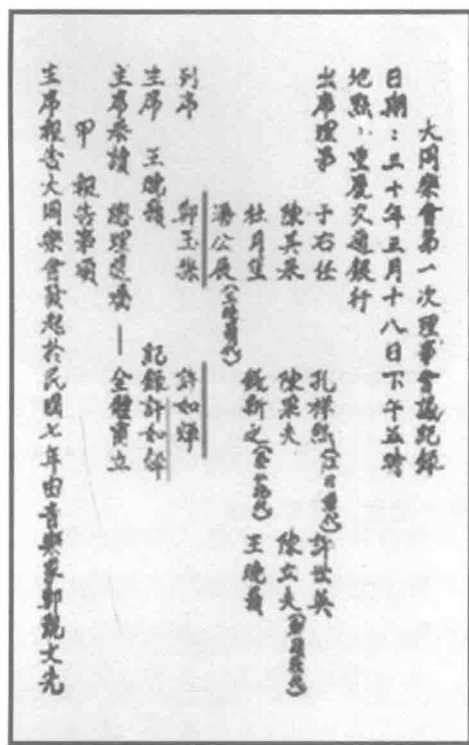 大同樂會第一次理事會議紀錄
日期：三十年三月十八日下午五時
地點：重慶交通銀行
出席理事 于右任 孔祥熙 許世英
陳其采 陳果夫 陳立夫
杜月笙 錢新之 王曉籟
潘公展（王曉籟代）
列席 鄭玉蓀 許如輝
主席 王曉籟 紀錄許如輝
主席恭讀 總理遺囑——全體肅立
甲 報告事項
主席報告大同樂會發起於民國七年由音樂家鄭覲文先